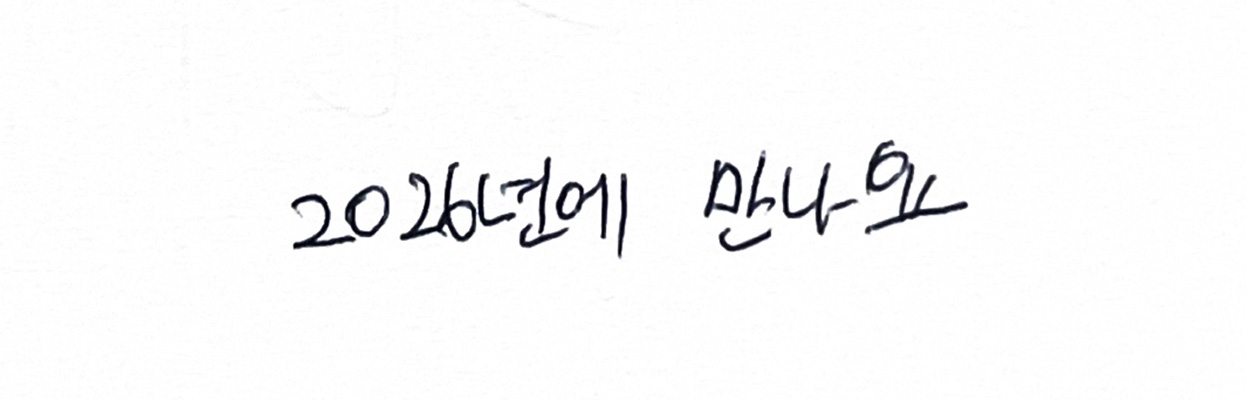 2026년에 만나요